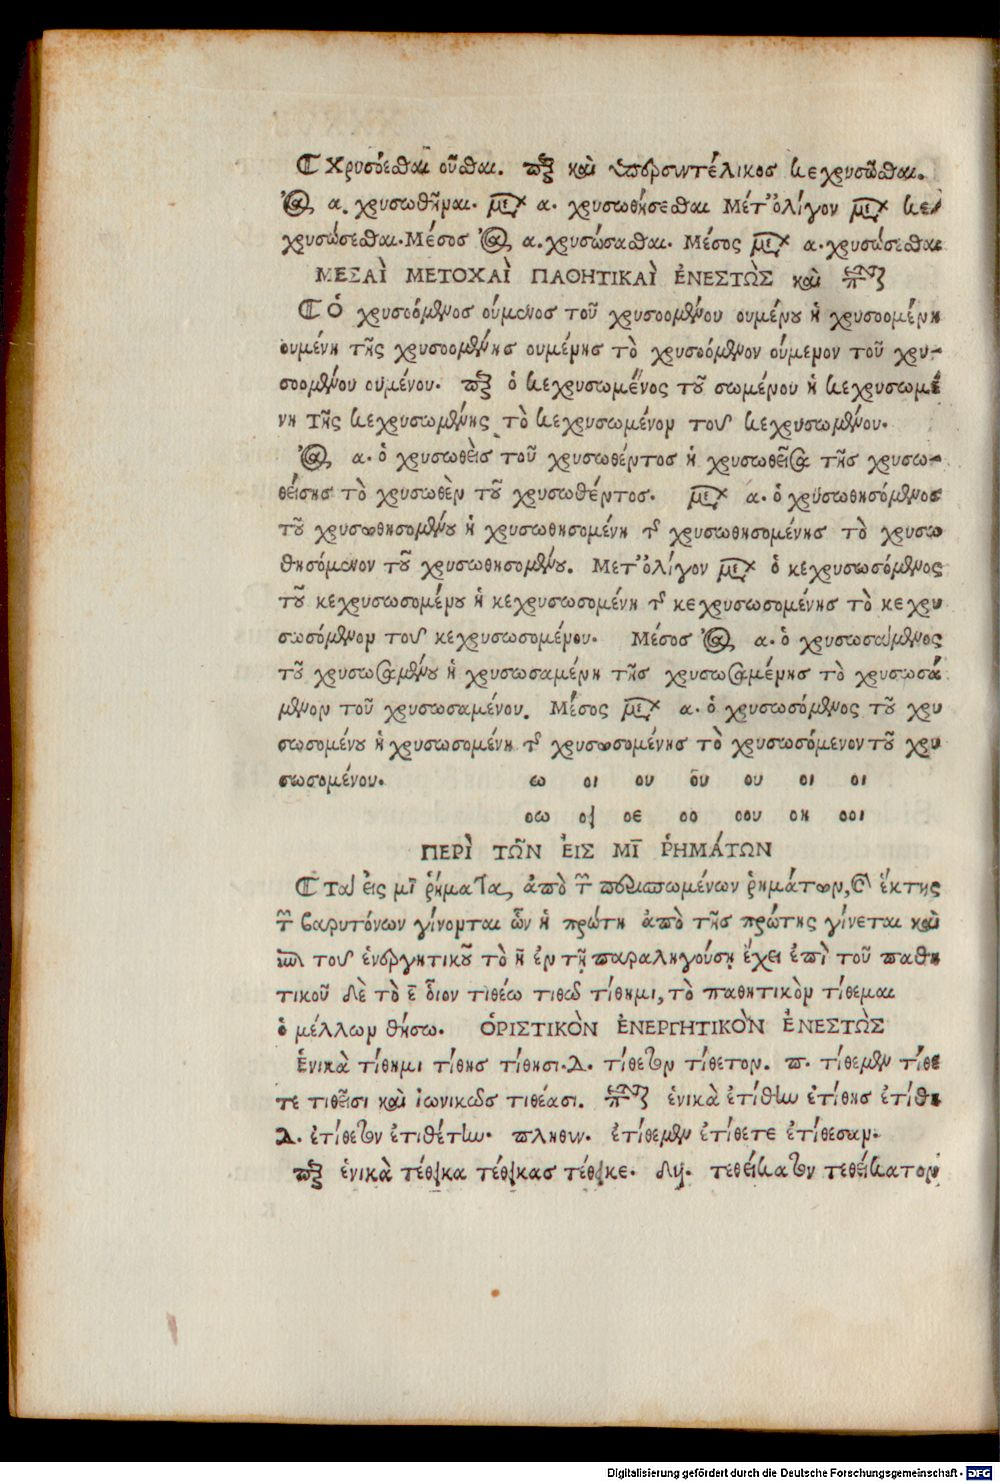 Χρυσόεσθαι οῦσθαι. πξ καὶ ὑπερσυντέλικος κεχρυσῶσθαι.
α. χρυσωθῆναι. μελ α. χρυσωθήσεσθαι Μέτ’ὀλίγον μελ κε-
χρυσώσεσθαι. Μέσος α. χρυσώσασθαι. Μέσος μελ α. χρυσώσεσθαι
ΜΕΣΑῚ ΜΕΤΟΧΑῚ ΠΑΘΗΤΙΚΑῚ ἘΝΕΣΤῺΣ καὶ
Ὁ χρυσοόμενος ούμενος τοῦ χρυσοομένου ουμένου ἡ χρυσοομένη
ουμένη τῆς χρυσοομένης ουμένης τὸ χρυσοόμενον ούμενον τοῦ χρυ-
σοομένου ουμένου. πξ ὁ κεχρυσωμένος τοῦ σωμένου ἡ κεχρυσωμέ
νη τῆς κεχρυσωμένης τὸ κεχρυσωμένον τοῦ κεχρυσωμένου.
α. ὁ χρυσωθεὶς τοῦ χρυσωθέντος ἡ χρυσωθεῖσα τῆς χρυσω-
θείσης τὸ χρυσωθὲν τοῦ χρυσωθέντος. μελ α. ὁ χρυσωθησόμενος
τοῦ χρυσωθησομένου ἡ χρυσωθησομένη τῆς χρυσωθησομένης τὸ χρυσω
θησόμενον τοῦ χρυσωθησομένου. Μετ’ὀλίγον μελ ὁ κεχρυσωσόμενος
τοῦ κεχρυσωσομένου ἡ κεχρυσωσομένη τῆς κεχρυσωσομένης τὸ κεχρυ
σωσόμενον τοῦ κεχρυσωσομένου. Μέσος α. ὁ χρυσωσάμενος
τοῦ χρυσωσαμένου ἡ χρυσωσαμένη τῆς χρυσωσαμένης τὸ χρυσωσά
μενον τοῦ χρυσωσαμένου. Μέσος μελ α. ὁ χρυσωσόμενος τοῦ χρυ
σωσομένου ἡ χρυσωσομένη τῆς χρυσωσομένης τὸ χρυσωσόμενον τοῦ χρυ
σωσομένου. ω οι ου οῦ ου οι οι
οω οει οε οο οου οη οοι
ΠΕΡῚ ΤΩ͂Ν ἘΙΣ ΜΙ ῬΗΜΆΤΩΝ
Τὰ εἰς μῖ ῥήματα, ἀπὸ τῶν περισπωμένων ῥημάτων, καὶ ἕκτης
τῶν βαρυτόνων γίνονται ὧν ἡ πρώτη ἀπὸ τῆς πρώτης γίνεται καὶ
ἐπὶ τοῦ ἐνεργητικοῦ τὸ η̄ ἐν τῇ παραληγούσῃ ἔχει ἐπὶ τοῦ παθη
τικοῦ δὲ τὸ ε̄ ὃιον τιθέω τιθῶ τίθημι, τὸ παθητικὸν τίθεμαι
ὁ μέλλων θήσω. ὉΡΙΣΤΙΚῸΝ ἘΝΕΡΓΗΤΙΚῸΝ ἘΝΕΣΤῺΣ
Ἑνικὰ τίθημι τίθης τίθησι. Δ. τίθετον τίθετον. π. τίθεμεν τίθε
τε τιθεῖσι καὶ ἰωνικῶς τιθέασι. ἑνικὰ ἐτίθην ἐτίθης ἐτίθη
Δ. ἐτίθετον ἐτιθέτην. πληθυν. ἐτίθεμεν ἐτίθετε ἐτίθεσαν.
πξ ἑνικὰ τέθεικα τέθεικας τέθεικε. δυ. τεθείκατον τεθείκατον
Digitalisierung gefördert durch die Deutsche Forschungsgemeinschaft - DFG